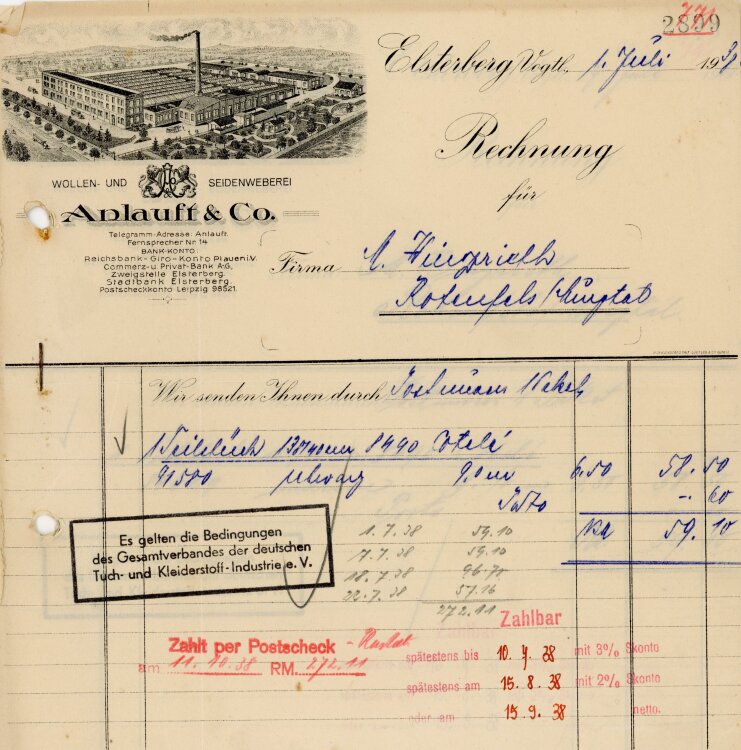 2899
771
Elsterberg Vogtl., 1. Juli 1938
Rechnung
für
WOLLEN- UND SEIDENWEBEREI
Anlauft & Co.
Telegramm-Adresse: Anlauft.
Fernsprecher Nr. 14
BANK-KONTO:
Reichsbank-Giro-Konto Plauen i.V.
Commerz- u. Privat-Bank A.G.,
Zweigstelle Elsterberg.
Stadtbank Elsterberg.
Postscheckkonto Leipzig 98521.
Firma A.
Rotenfels/Murgtal
Wir senden Ihnen durch Post 1 Paket
1 130/140 cm 8490
91500 schwarz 9.0 m 6.50 58.50
Porto -.60
RM 59.10
Es gelten die Bedingungen
des Gesamtverbandes der deutschen
Tuch- und Kleiderstoff-Industrie e. V.
1.7.38 59.10
7.7.38 59.10
18.7.38 96.75
22.7.38 57.16
272.11
Zahlbar
Zahlt per Postscheck - Rastat
am 11.10.38 RM. 272.11
spätestens bis 10.7.38 mit 3% Skonto
spätestens am 15.8.38 mit 2% Skonto
oder am 15.9.38 netto.